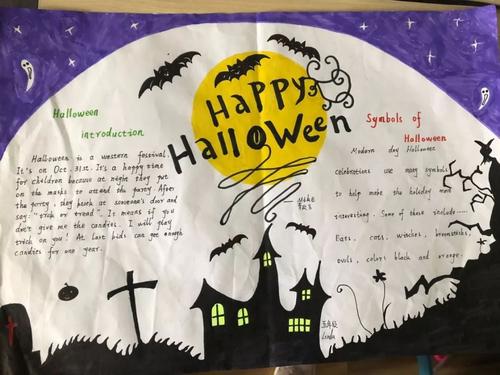 Happy
Halloween
Halloween
introduction
Halloween is a western festival.
It's on Oct. 31st. It's a happy time
for children because at night they put
on the masks to attend the party. After
the party, they knock at someone's door and
say: "trick or treat". It means if you
don't give me the candies. I will play
trick on you! At last kids can get enough
candies for one year.
Symbols of
Halloween
Modern day Halloween
celebrations use many symbols
to help make the holiday more
interesting. Some of these include......
Bats, cats, witches, broomsticks,
owls, colors black and orange.
Linda